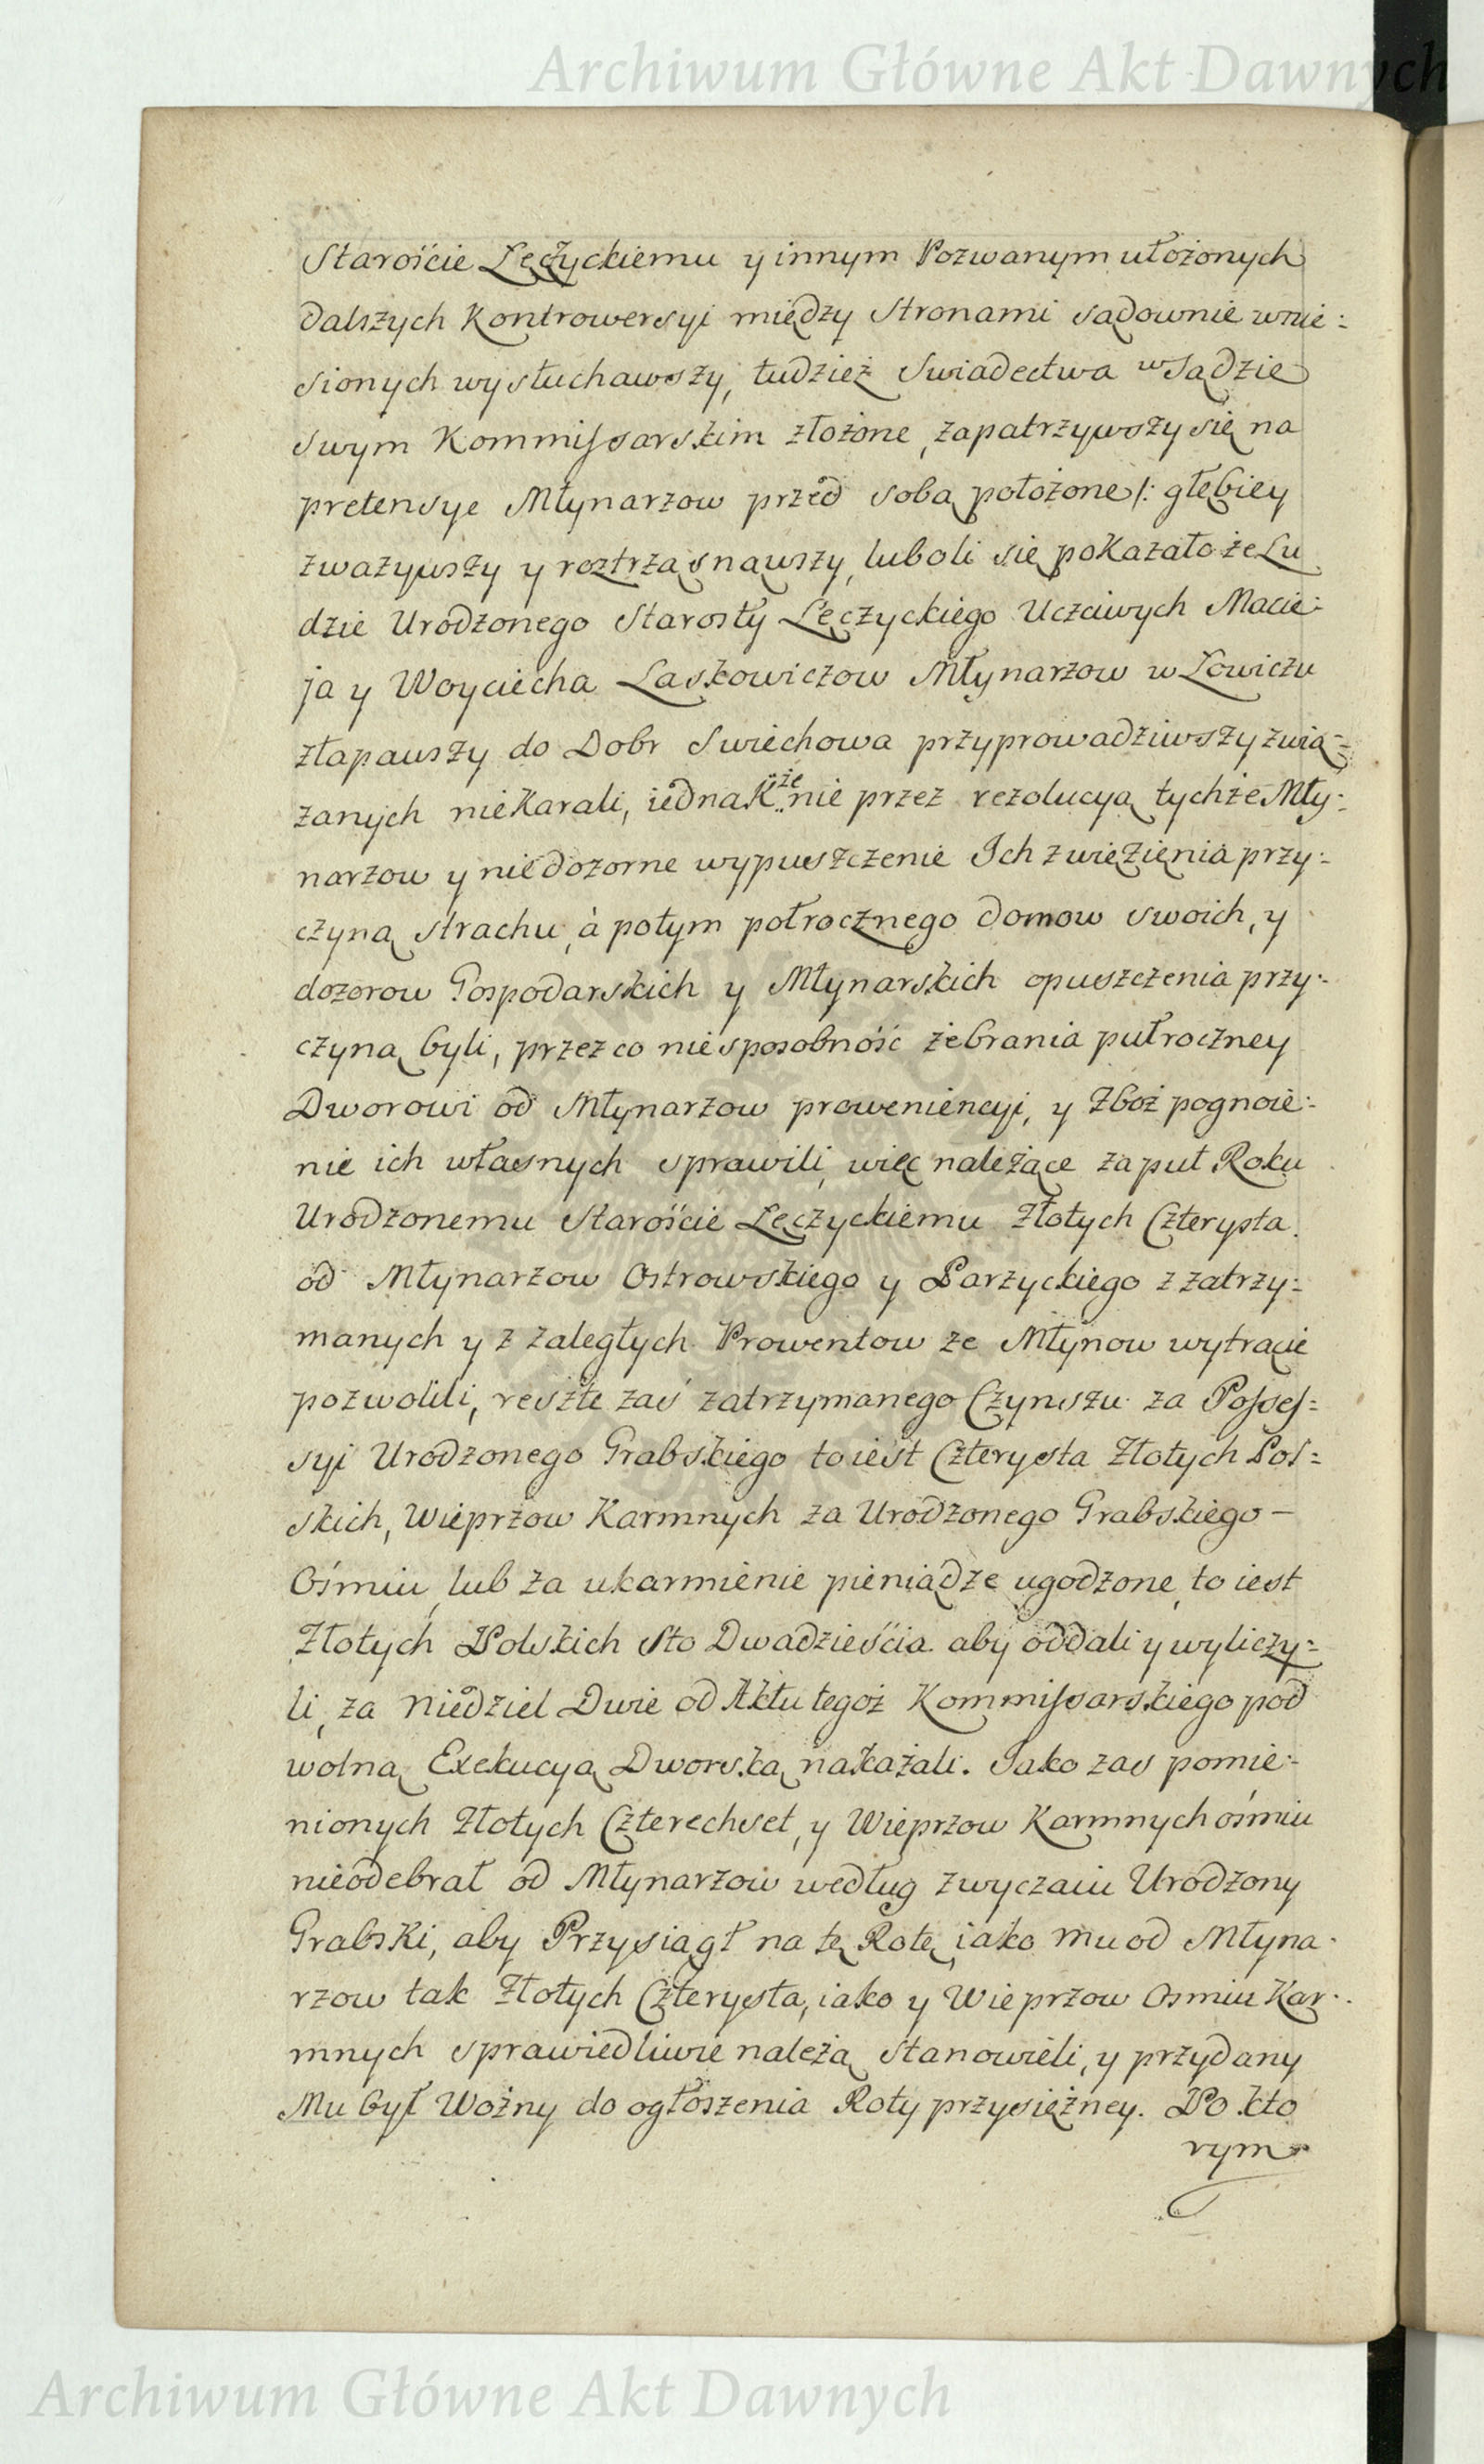 Archiwum Główne Akt Dawnych
Staroście Łęczyckiemu y innym Pozwanym ułożonych
dalszych Kontrowersyi między Stronami sądownie wnie:
sionych wysłuchawszy, tudzież Swiadectwa w Sądzie
Swym Kommissarskim złożone, zapatrzywszy się na
pretensye Młynarzow przed sobą położone /: głębiey
zważywszy y roztrząsnąwszy, luboli się pokazało że Lu
dzie Urodzonego Starosty Łęczyckiego Uczciwych Macie:
ja y Woyciecha Laskowiczow Młynarzow w Łowiczu
złapawszy do Dobr Swiechowa przyprowadziwszy zwią:
zanych nie Karali, iednak że nie przez rezolucyą tychże Mły:
narzow y niedozorne wypuszczenie Ich z więzienia przy:
czyną strachu, à potym połrocznego Domow swoich, y
dozorow Gospodarskich y Młynarskich opuszczenia przy:
czyną byli, przez co niesposobność zebrania pułroczney
Dworowi od Młynarzow proweniencyi, y Zboż pognoie:
nie ich własnych sprawili, więc należące za puł Roku
Urodzonemu Starościе Łęczyckiemu Złotych Czterysta
od Młynarzow Ostrowskiego y Parzyckiego z zatrzy:
manych y z zaległych Prowentow ze Młynow wytrącić
pozwolili, resztę zaś zatrzymanego Czynszu za Posses:
syi Urodzonego Grabskiego to iest Czterysta Złotych Pol:
skich, Wieprzow Karmnych za Urodzonego Grabskiego –
Ośmiu, lub za ukarmienie pieniądze ugodzone, to iest
Złotych Polskich Sto Dwadzieścia aby oddali y wyliczy:
li, za Niedziel Dwie od Aktu tegoż Kommissarskiego pod
wolną Exekucyą Dworską nakazali. Jako zas pomie:
nionych Złotych Czterechset, y Wieprzow Karmnych ośmiu
nieodebrał od Młynarzow według zwyczaiu Urodzony
Grabski, aby Przysiągł na tę Rotę, iako mu od Młyna:
rzow tak Złotych Czterysta, iako y Wieprzow Osmiu Kar:
mnych sprawiedliwie należą stanowieli, y przydany
Mu był Woźny do ogłoszenia Roty przysiężney. Po kto
rym
Archiwum Główne Akt Dawnych